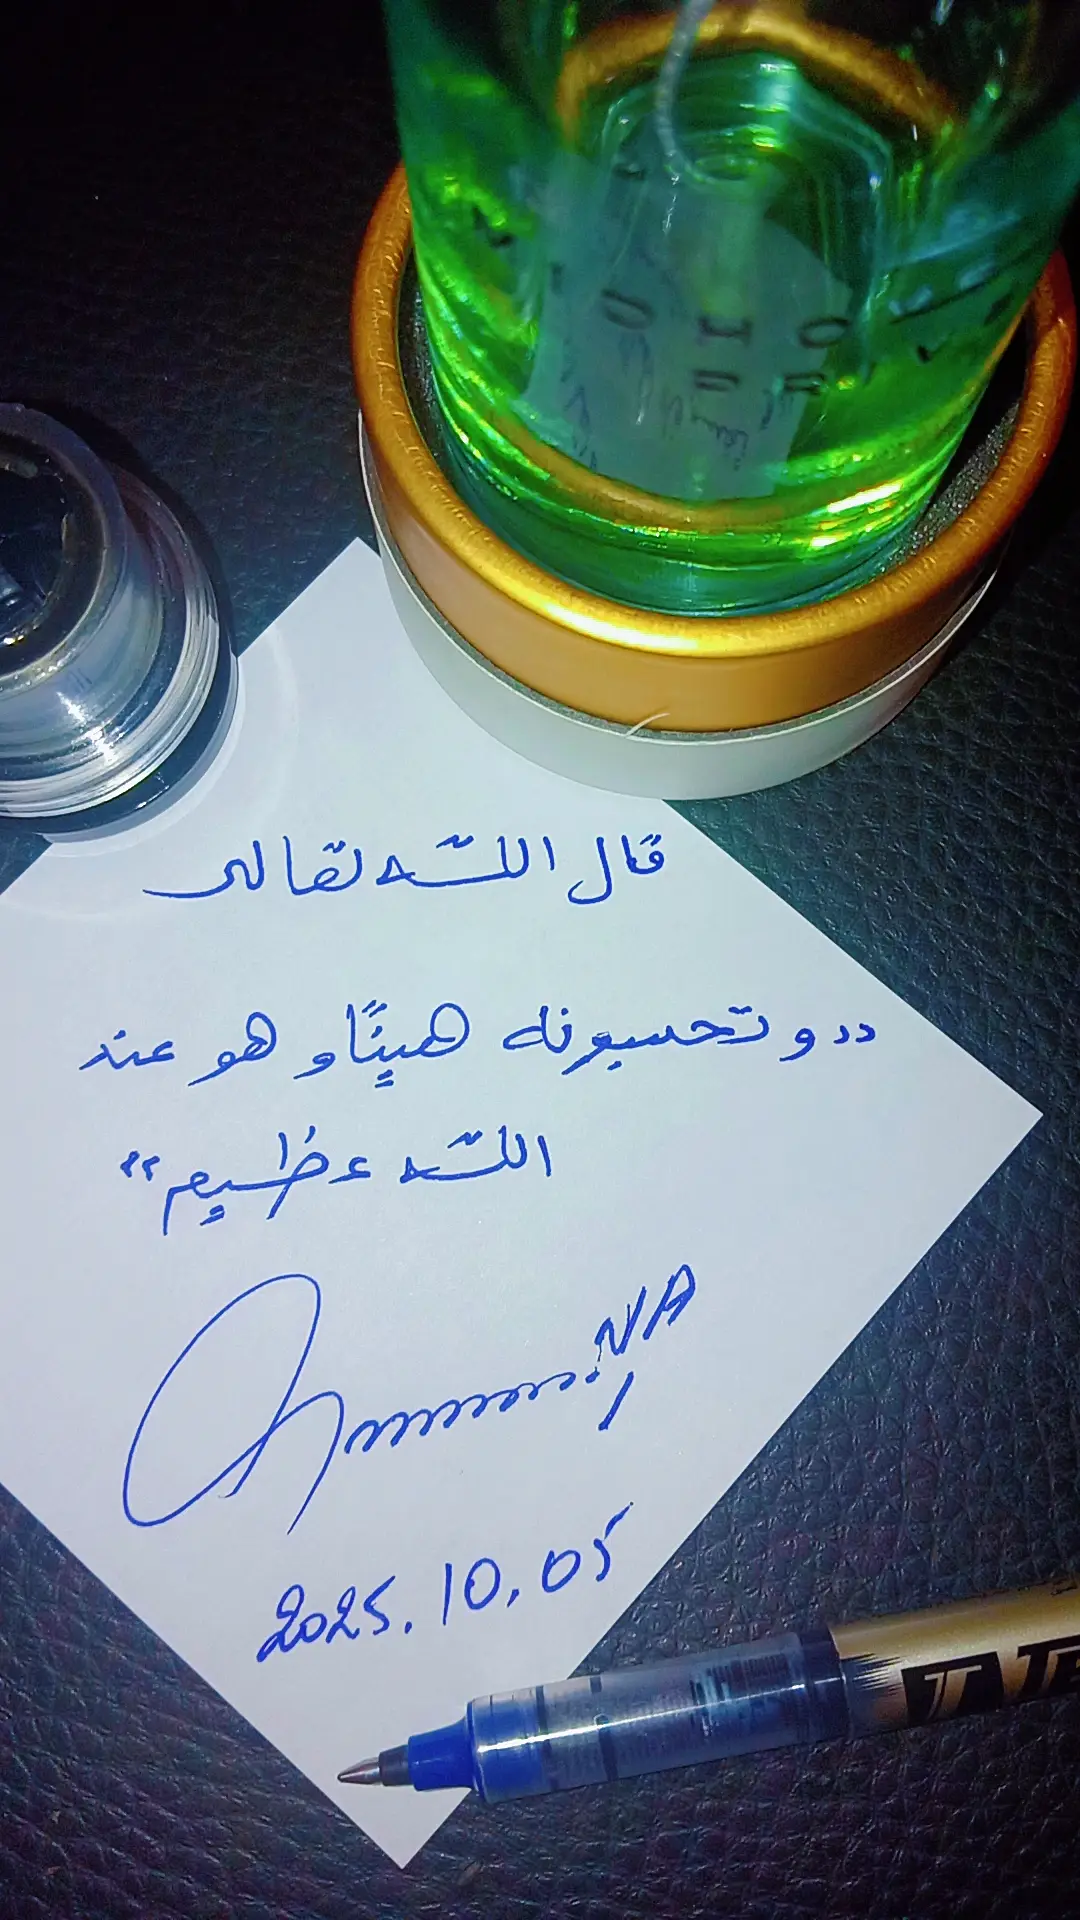 قال اللّه تعالى
"وتحسبونه هينًا وهو عند
اللّه عظيم"
NA
2025.10.05